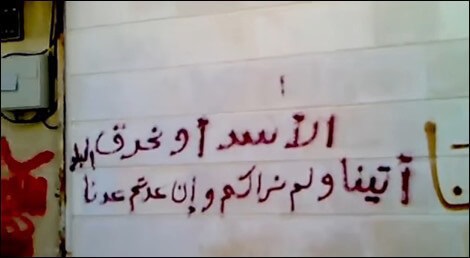 الأسد أو نحرق البلد
أتينا ولم نراكم وإن عدتم عدنا